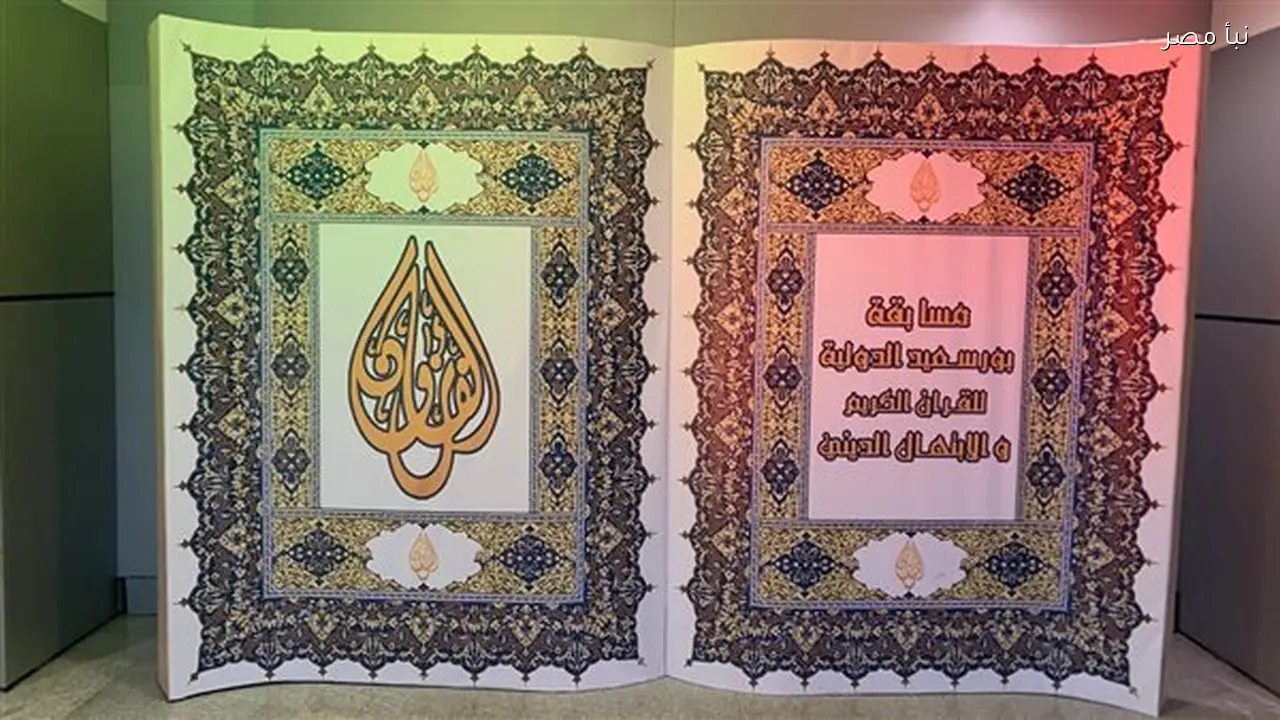 نبأ مصر
مسابقة
بورسعيد الدولية
للقران الكريم
و الابتهال الديني